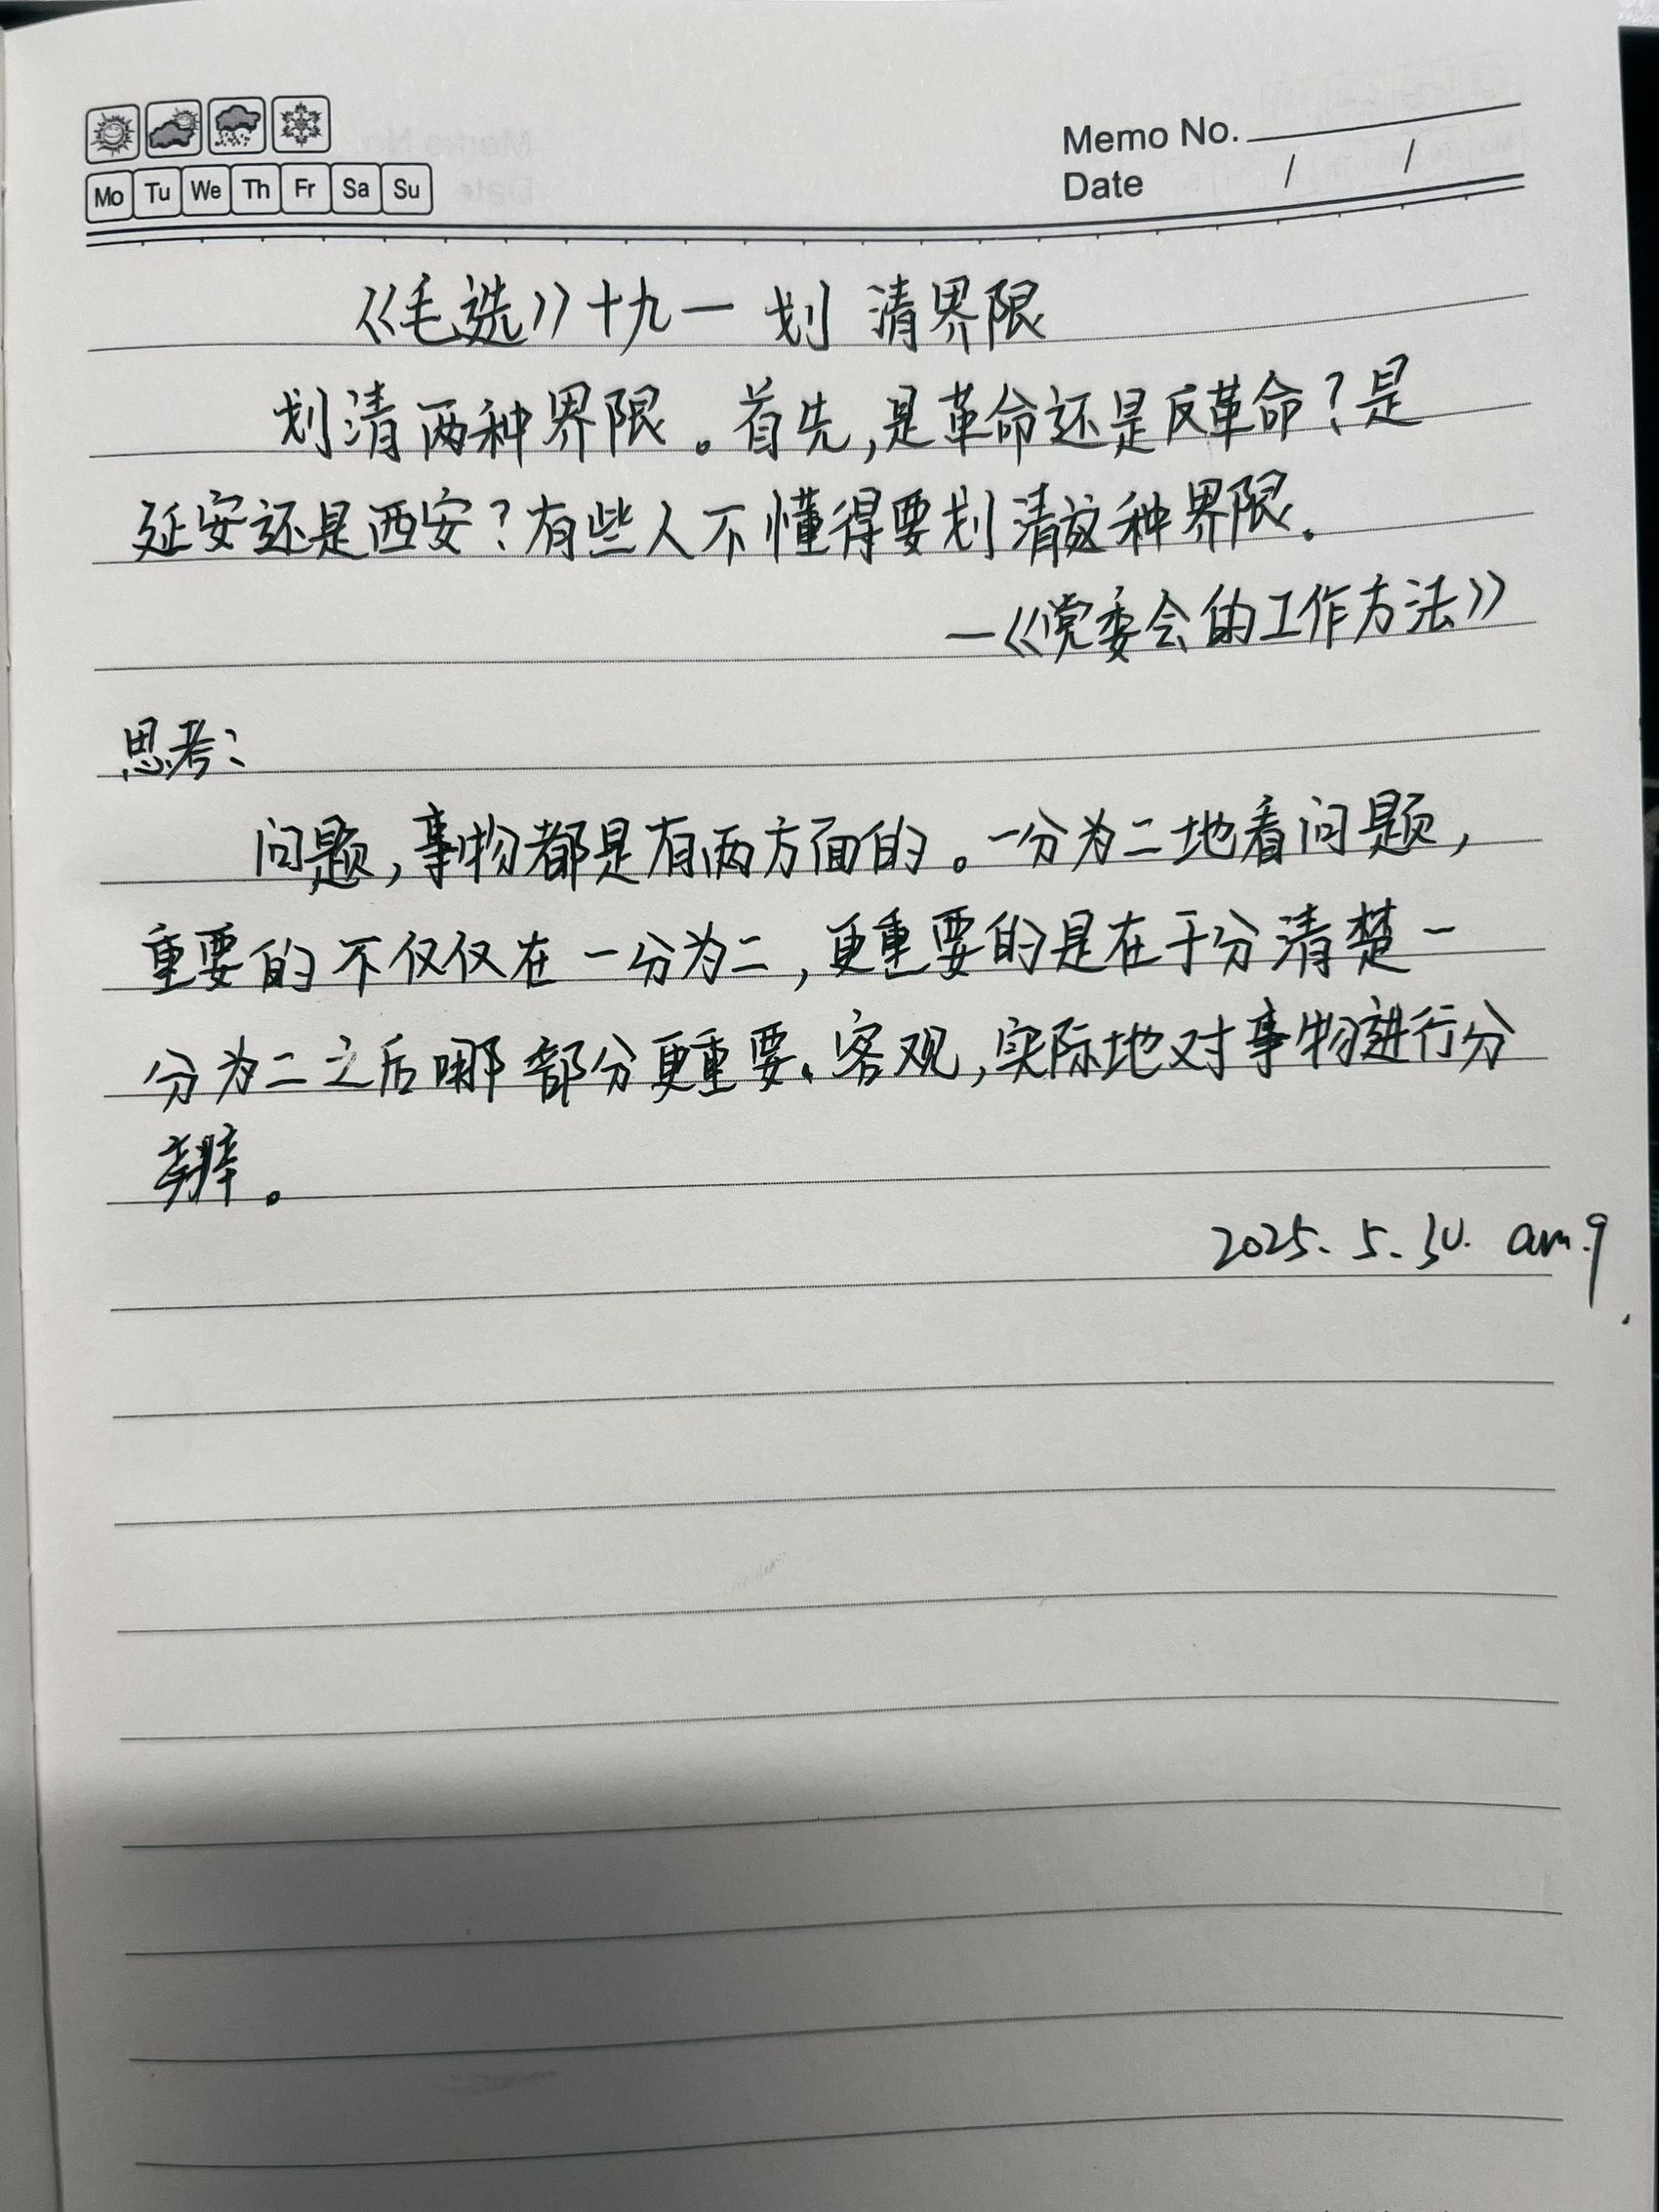 Mo Tu We Th Fr Sa Su
Memo No.
Date / /
《毛选》十九一 划清界限
划清两种界限。首先,是革命还是反革命?是
延安还是西安?有些人不懂得要划清这种界限.
—《党委会的工作方法》
思考:
问题,事物都是有两方面的。一分为二地看问题,
重要的不仅仅在一分为二,更重要的是在于分清楚一
分为二之后哪部分更重要、客观,实际地对事物进行分
辨。
2025. 5. 30. am.9